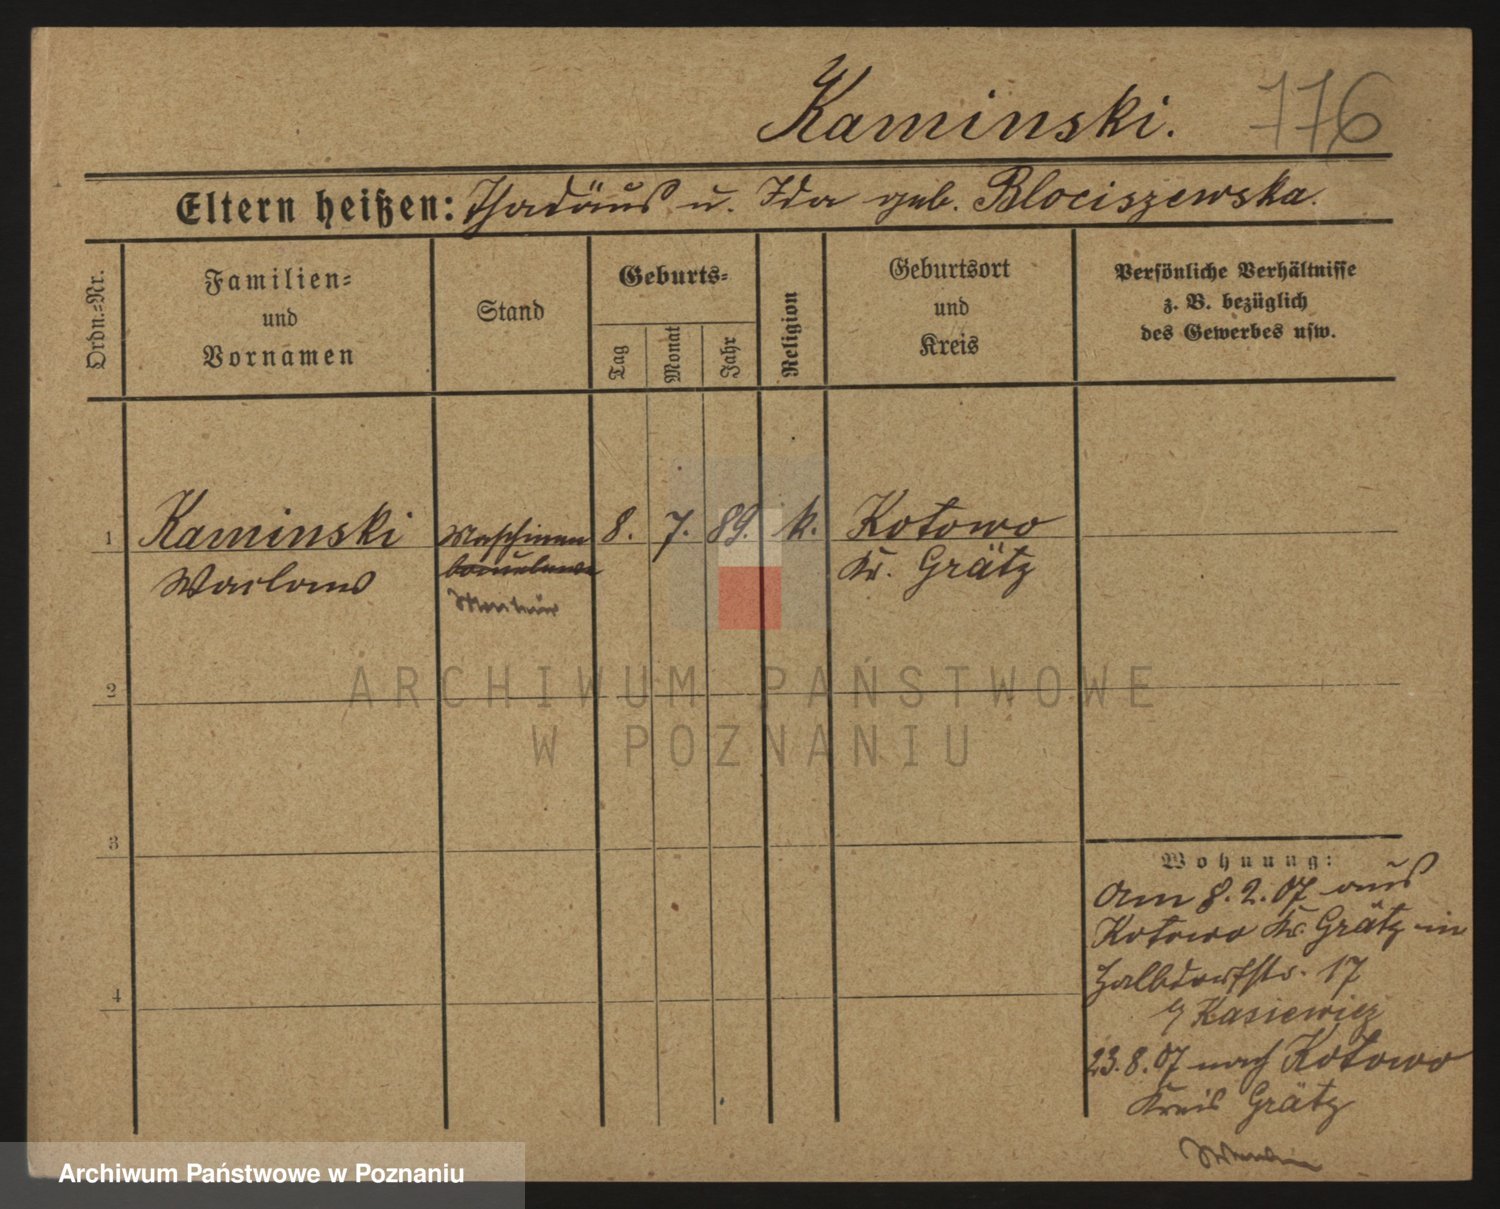 Kaminski. 776
Eltern heißen: Thadäus u. Ida geb. Blociszewska.
Ordn.-Nr.
Familien-
und
Vornamen
Stand
Geburts-
Tag
Monat
Jahr
Religion
Geburtsort
und
Kreis
Persönliche Verhältnisse
z. B. bezüglich
des Gewerbes usw.
1 Kaminski Maschinen 8. 7. 89. k. Kotowo
Kr. Grätz
2
ARCHIWUM PAŃSTWOWE
W POZNANIU
3
Wohnung:
Am 8.2.07 aus
Kotowo Kr. Grätz in
Halbdorfstr. 17
b/ Kasiewicz
4
23.8.07 nach Kotowo
Kreis Grätz
Archiwum Państwowe w Poznaniu